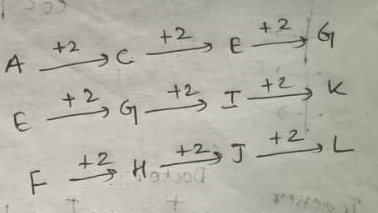 A +2→ C +2→ E +2→ G
E +2→ G +2→ I +2→ K
F +2→ H +2→ J +2→ L